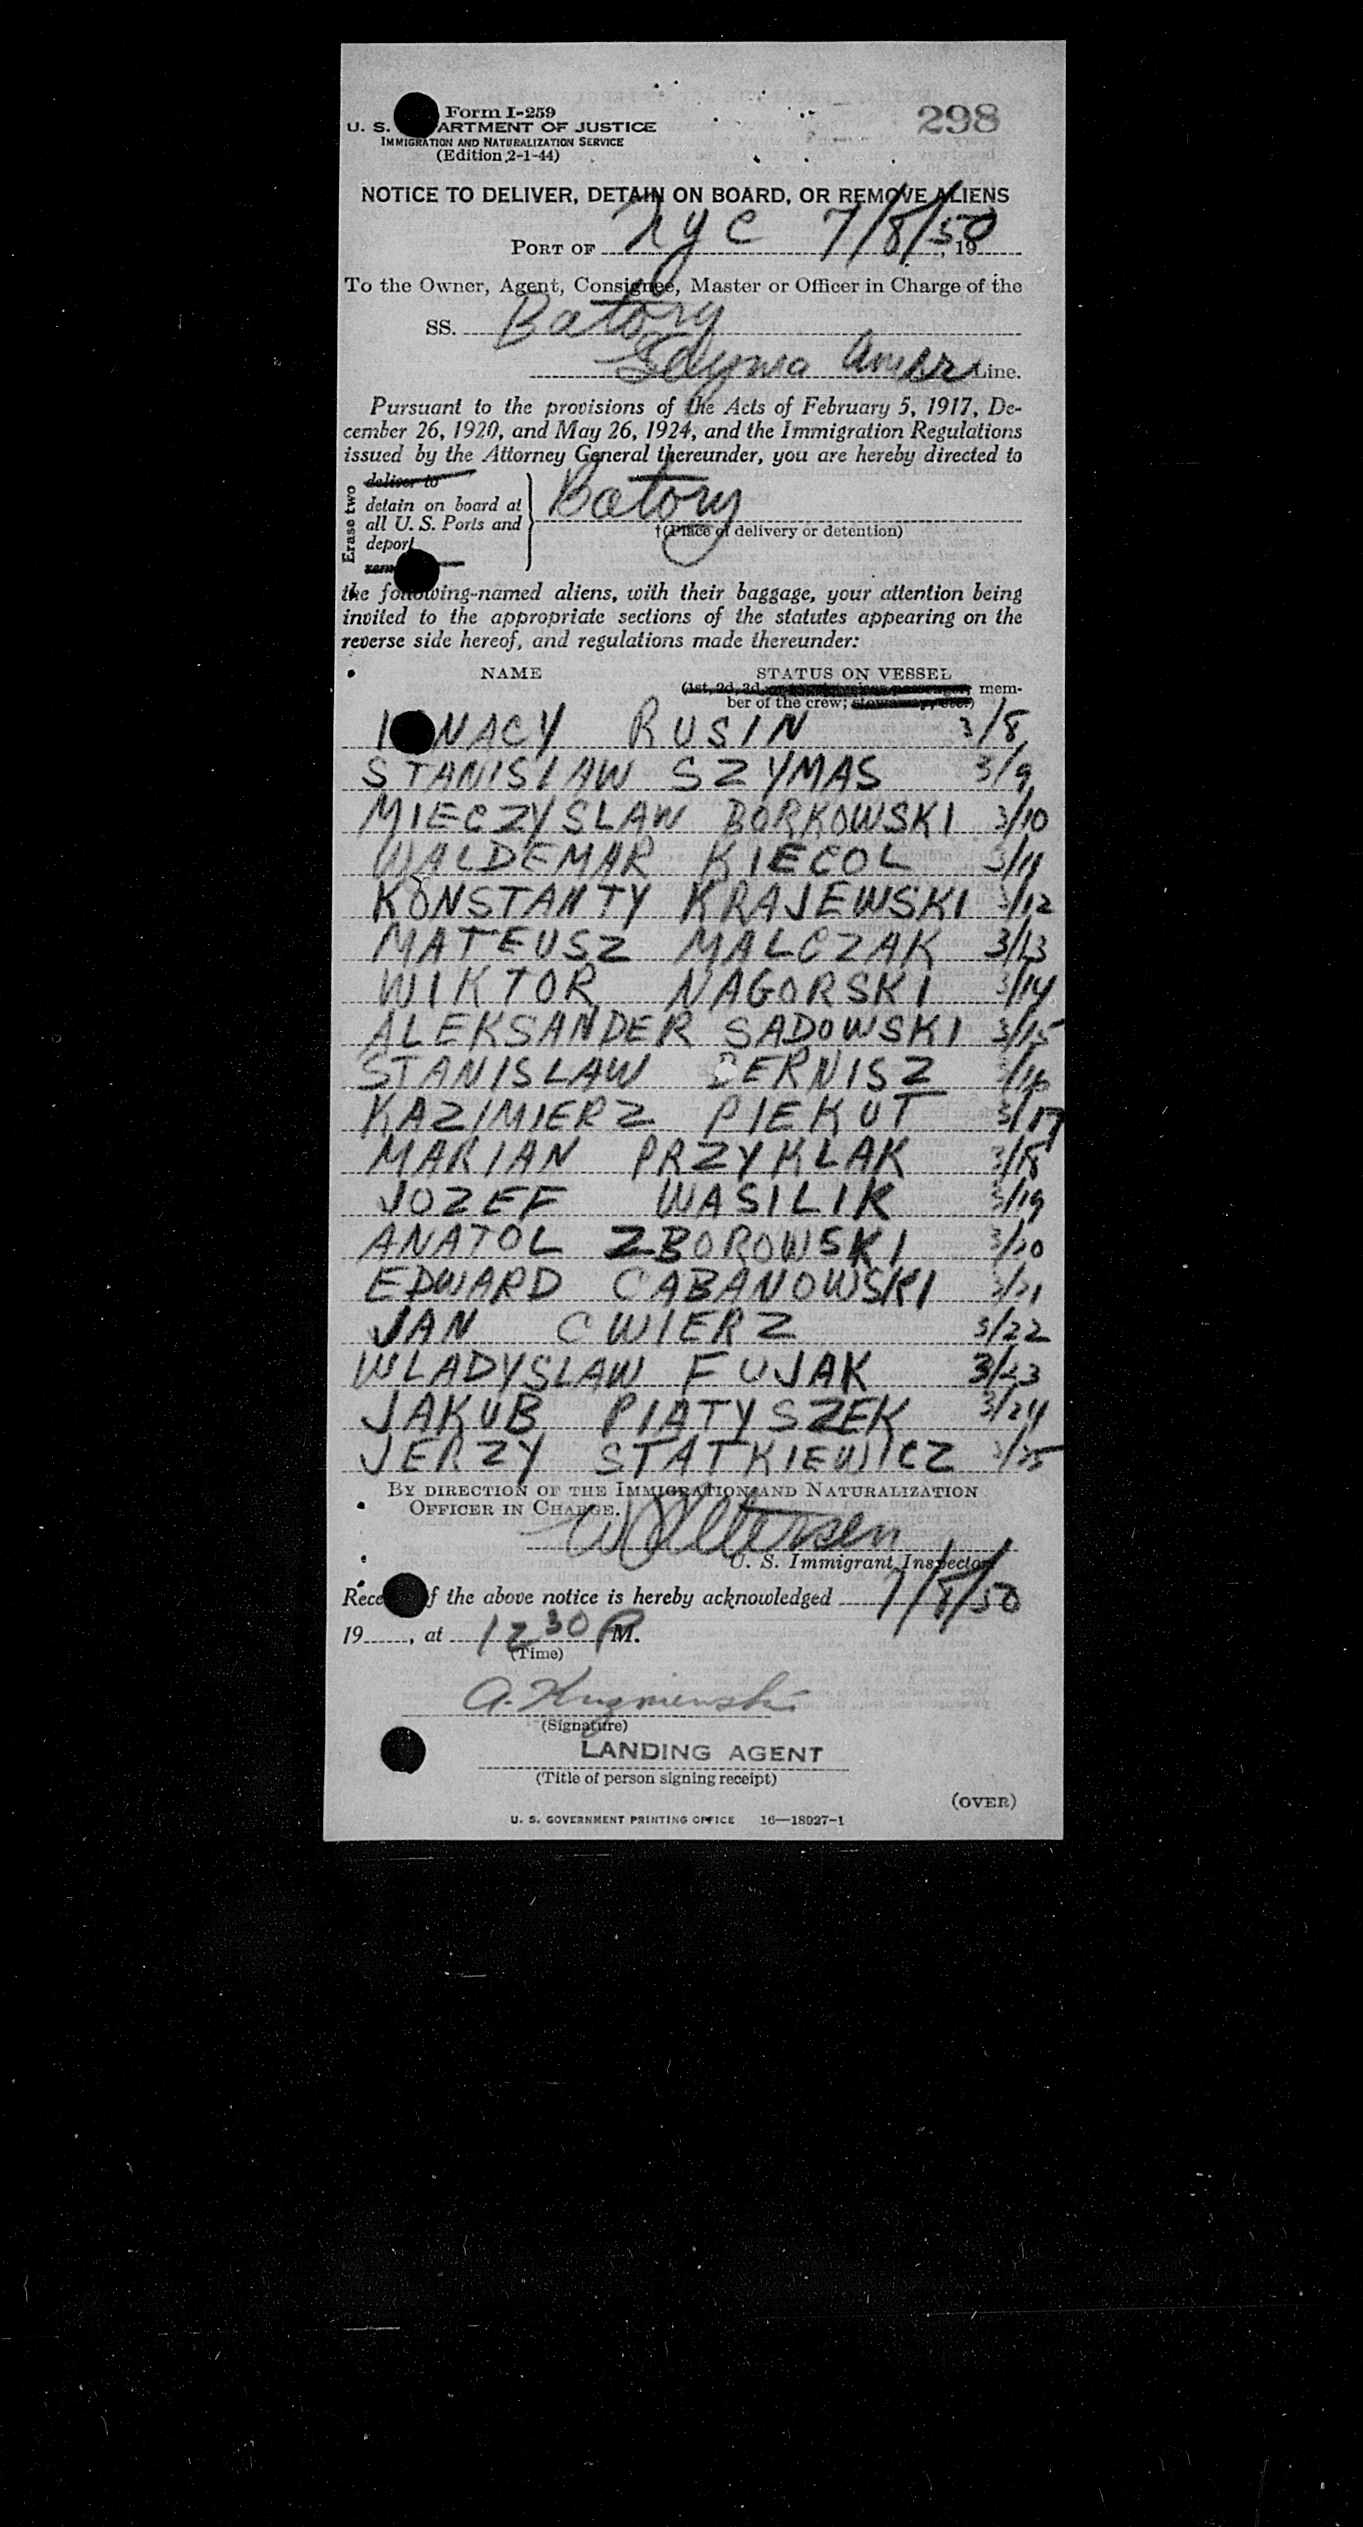 298
Form I-259
U. S. ARTMENT OF JUSTICE
IMMIGRATION AND NATURALIZATION SERVICE
(Edition 2-1-44)
NOTICE TO DELIVER, DETAIN ON BOARD, OR REMOVE ALIENS
PORT OF NYC 7/8/50, 19
To the Owner, Agent, Consignee, Master or Officer in Charge of the
SS. Batory
Gdynia Amer Line.
Pursuant to the provisions of the Acts of February 5, 1917, De-
cember 26, 1920, and May 26, 1924, and the Immigration Regulations
issued by the Attorney General thereunder, you are hereby directed to
Erase two
deliver to
detain on board at
all U. S. Ports and
deport
Batory
†(Place of delivery or detention)
the following-named aliens, with their baggage, your attention being
invited to the appropriate sections of the statutes appearing on the
reverse side hereof, and regulations made thereunder:
NAME STATUS ON VESSEL
(1st, 2d, 3d, mem-
ber of the crew;
I NACY RUSIN 3/8
STANISLAW SZYMAS 3/9
MIECZYSLAW BORKOWSKI 3/10
WALDEMAR KIECOL 3/11
KONSTANTY KRAJEWSKI 3/12
MATEUSZ MALCZAK 3/13
WIKTOR NAGORSKI 3/14
ALEKSANDER SADOWSKI 3/15
STANISLAW BERNISZ 3/16
KAZIMIERZ PIEKUT 3/17
MARIAN PRZYKLAK 3/18
JOZEF WASILIK 3/19
ANATOL ZBOROWSKI 3/20
EDWARD CABANOWSKI 3/21
JAN CWIERZ 3/22
WLADYSLAW FUJAK 3/23
JAKUB PIATYSZEK 3/24
JERZY STATKIEWICZ 3/25
BY DIRECTION OF THE IMMIGRATION AND NATURALIZATION
OFFICER IN CHARGE.
U. S. Immigrant Inspector
Rece f the above notice is hereby acknowledged 7/8/50
19, at 12 30 P M.
(Time)
A. Kuzniewski
(Signature)
LANDING AGENT
(Title of person signing receipt)
(OVER)
U. S. GOVERNMENT PRINTING OFFICE 16—18027-1